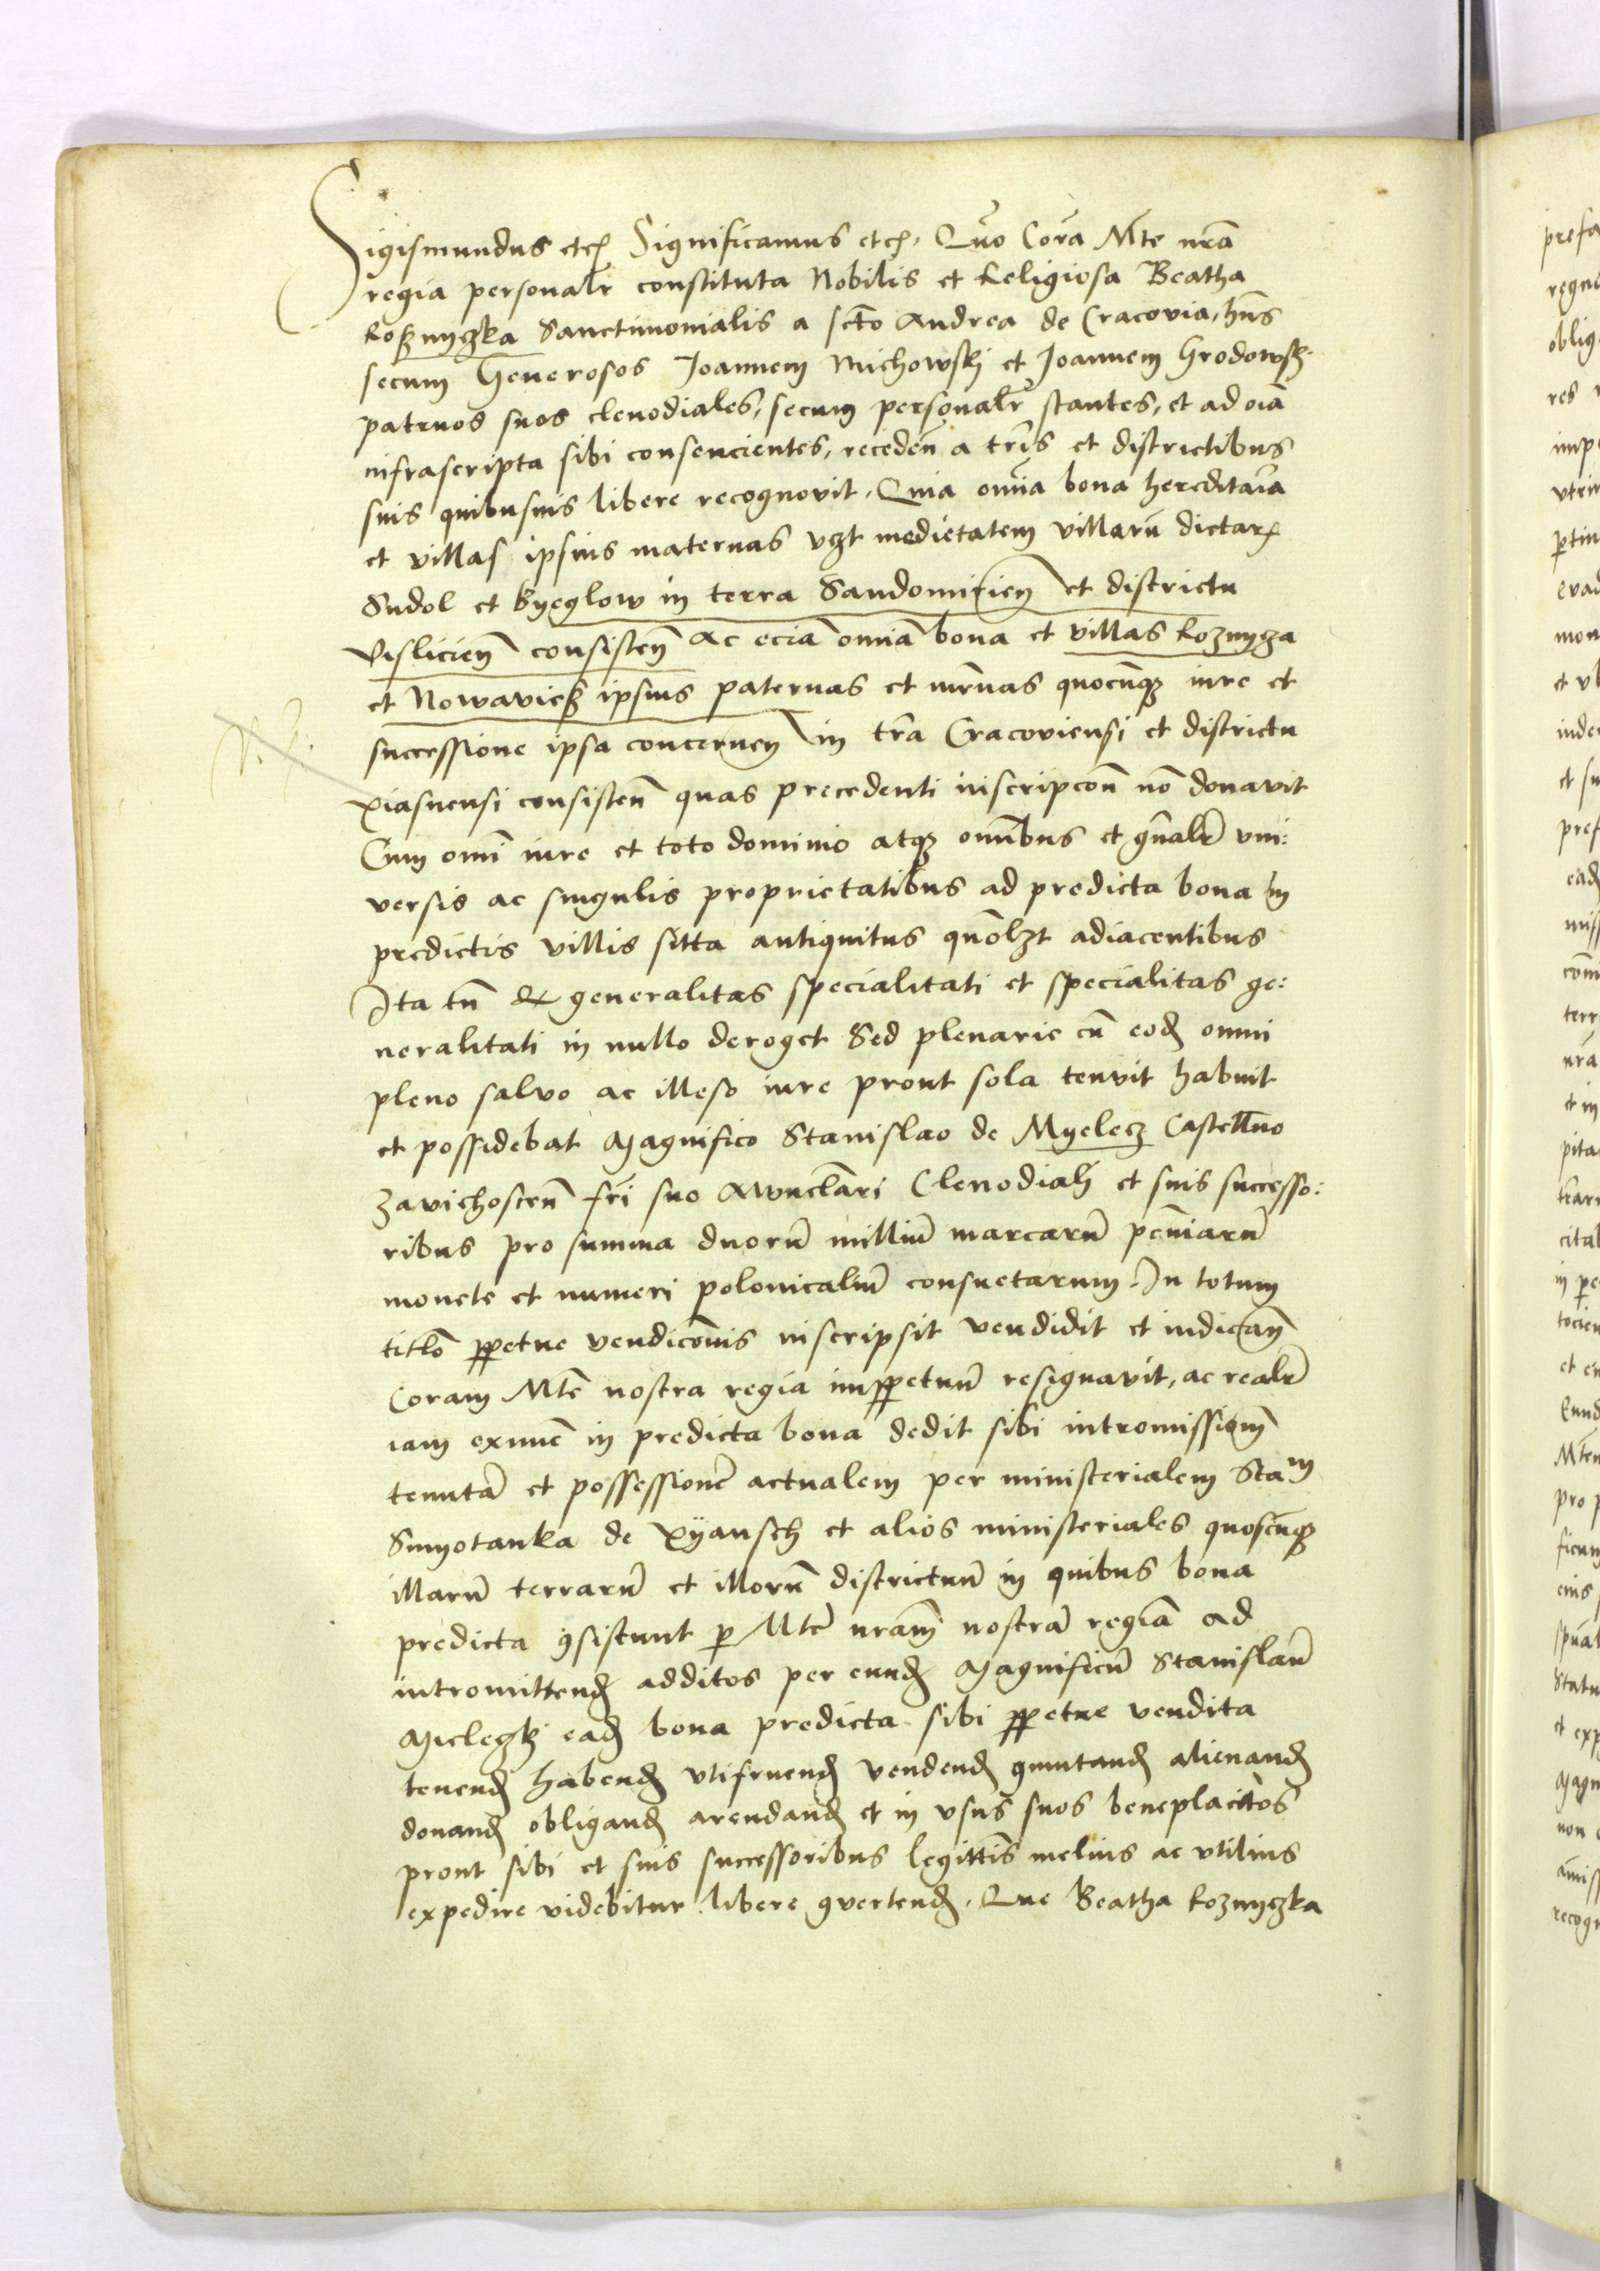 Sigismundus etcʒ Significamus etcʒ. Quō Corā Mte nrā
regia personalr constituta Nobilis et Religiosa Beatha
Roßnyczka Sanctimonialis a scto Andrea de Cracovia, hñs
secum Generosos Joannem Michowskj et Joannem Grodowsk.
patruos suos clenodiales, secum personalr stantes, et ad oīa
infrascripta sibi consencientes, recedeñ a trīs et districtibus
suis quibusuis libere recognovit. Quia omīa bona hereditaīa
et villas ipsius maternas vzt medietatem villarū dictarꝝ
Sudol et Kyeglow in terra Sandomirieñ et districtu
Vislicieñ consisteñ Ac eciā omīa bona et villas Roznycza
et Nowavieß ipsius paternas et mr̄nas quocūqʒ iure et
successione ipsā concerneñ in trā Cracoviensi et districtu
Xiasnensi consisteñ quas precedenti inscripcoñ nō donavit
Cum omī iure et toto dominio atqʒ omībus et gnālr vni:
versis ac singulis proprietatibus ad predicta bona in
predictis villis sitta antiquitus quōlʒt adiacentibus
Ita tñ qʒ generalitas specialitati et specialitas ge:
neralitati in nullo deroget Sed plenarie cū eodʒ omni
pleno salvo ac illeso iure prout sola tenvit habuit
et possidebat Magnifico Stanislao de Myelecz Castellno
Zavichosteñ frī suo Awnclari Clenodiali et suis successo:
ribus pro summa duorū milliū marcarū pecūiarū
monete et numeri polonicaliū consuetarum. In totum
titlō ꝑpetue vendicōnis inscripsit vendidit et iudicañ
Coram Mte nostra regia imꝑpetuū resignavit, ac realr
iam exnūc in predicta bona dedit sibi intromissionē
tenutā et possessionē actualem per ministerialem Stam
Smyotanka de Xÿansch et alios ministeriales quoscūqʒ
illarū terrarū et illorū districtuū in quibus bona
predicta ꝯsistunt ꝑ Mte nrām nostrā regiā ad
intromittendʒ additos per eundʒ Magnificū Stanislaū
Mielegky eadʒ bona predicta sibi ꝑpetue vendita
tenendʒ habendʒ vtifruendʒ vendendʒ ꝯmutandʒ alienandʒ
donandʒ obligandʒ arendandʒ et in vsus suos beneplacitos
prout sibi et suis successoribus legittīs melius ac vtilius
expedire videbitur libere ꝯvertendʒ. Que Beatha Roznyczka